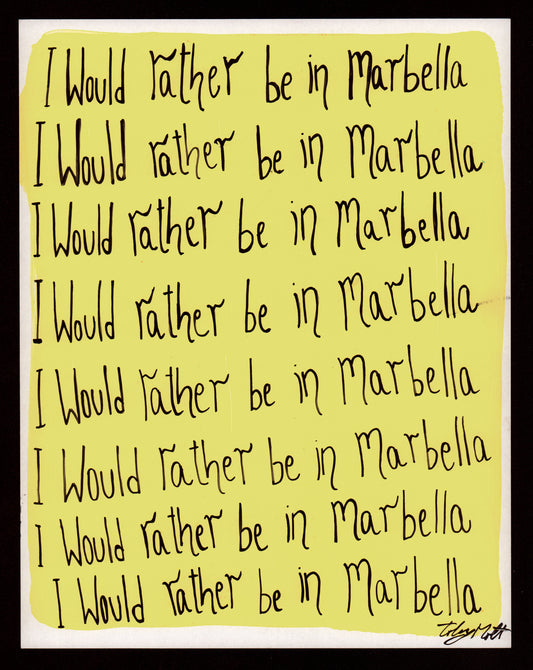 I Would rather be in Marbella
I Would rather be in Marbella
I Would rather be in Marbella
I Would rather be in Marbella
I Would rather be in Marbella
I Would rather be in Marbella
I Would rather be in Marbella
I Would rather be in Marbella
Toby Mott